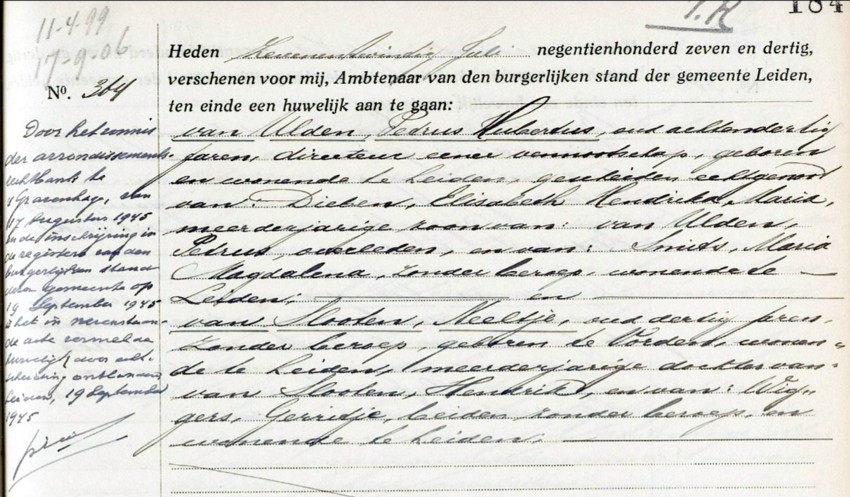 184
11-4-99
17-9-06
Nº. 364
Heden zevenentwintig Juli negentienhonderd zeven en dertig,
verschenen voor mij, Ambtenaar van den burgerlijken stand der gemeente Leiden,
ten einde een huwelijk aan te gaan:
van Ulden, Petrus Hubertus, oud achtendertig
jaren, directeur eener vennootschap, geboren
en wonende te Leiden, gescheiden echtgenoot
van Dieben, Elisabeth Hendrika Maria,
meerderjarige zoon van: van Ulden,
Petrus, overleden, en van: Smits, Maria
Magdalena, zonder beroep, wonende te
Leiden, en
van Slooten, Neeltje, oud dertig jaren,
zonder beroep, geboren te Vorden, wonen=
de te Leiden, meerderjarige dochter van
van Slooten, Hendrik, en van: Wig=
gers, Gerritje, beiden zonder beroep, en
wonende te Leiden.
Door het vonnis
der arrondissements-
rechtbank te
's Gravenhage, van
17 Augustus 1945
en de inschrijving in
de registers van den
burgerlijken stand
dezer gemeente op
19 September 1945
is het in nevenstaan-
de akte vermelde
huwelijk door echt-
scheiding ontbonden
Leiden, 19 September
1945